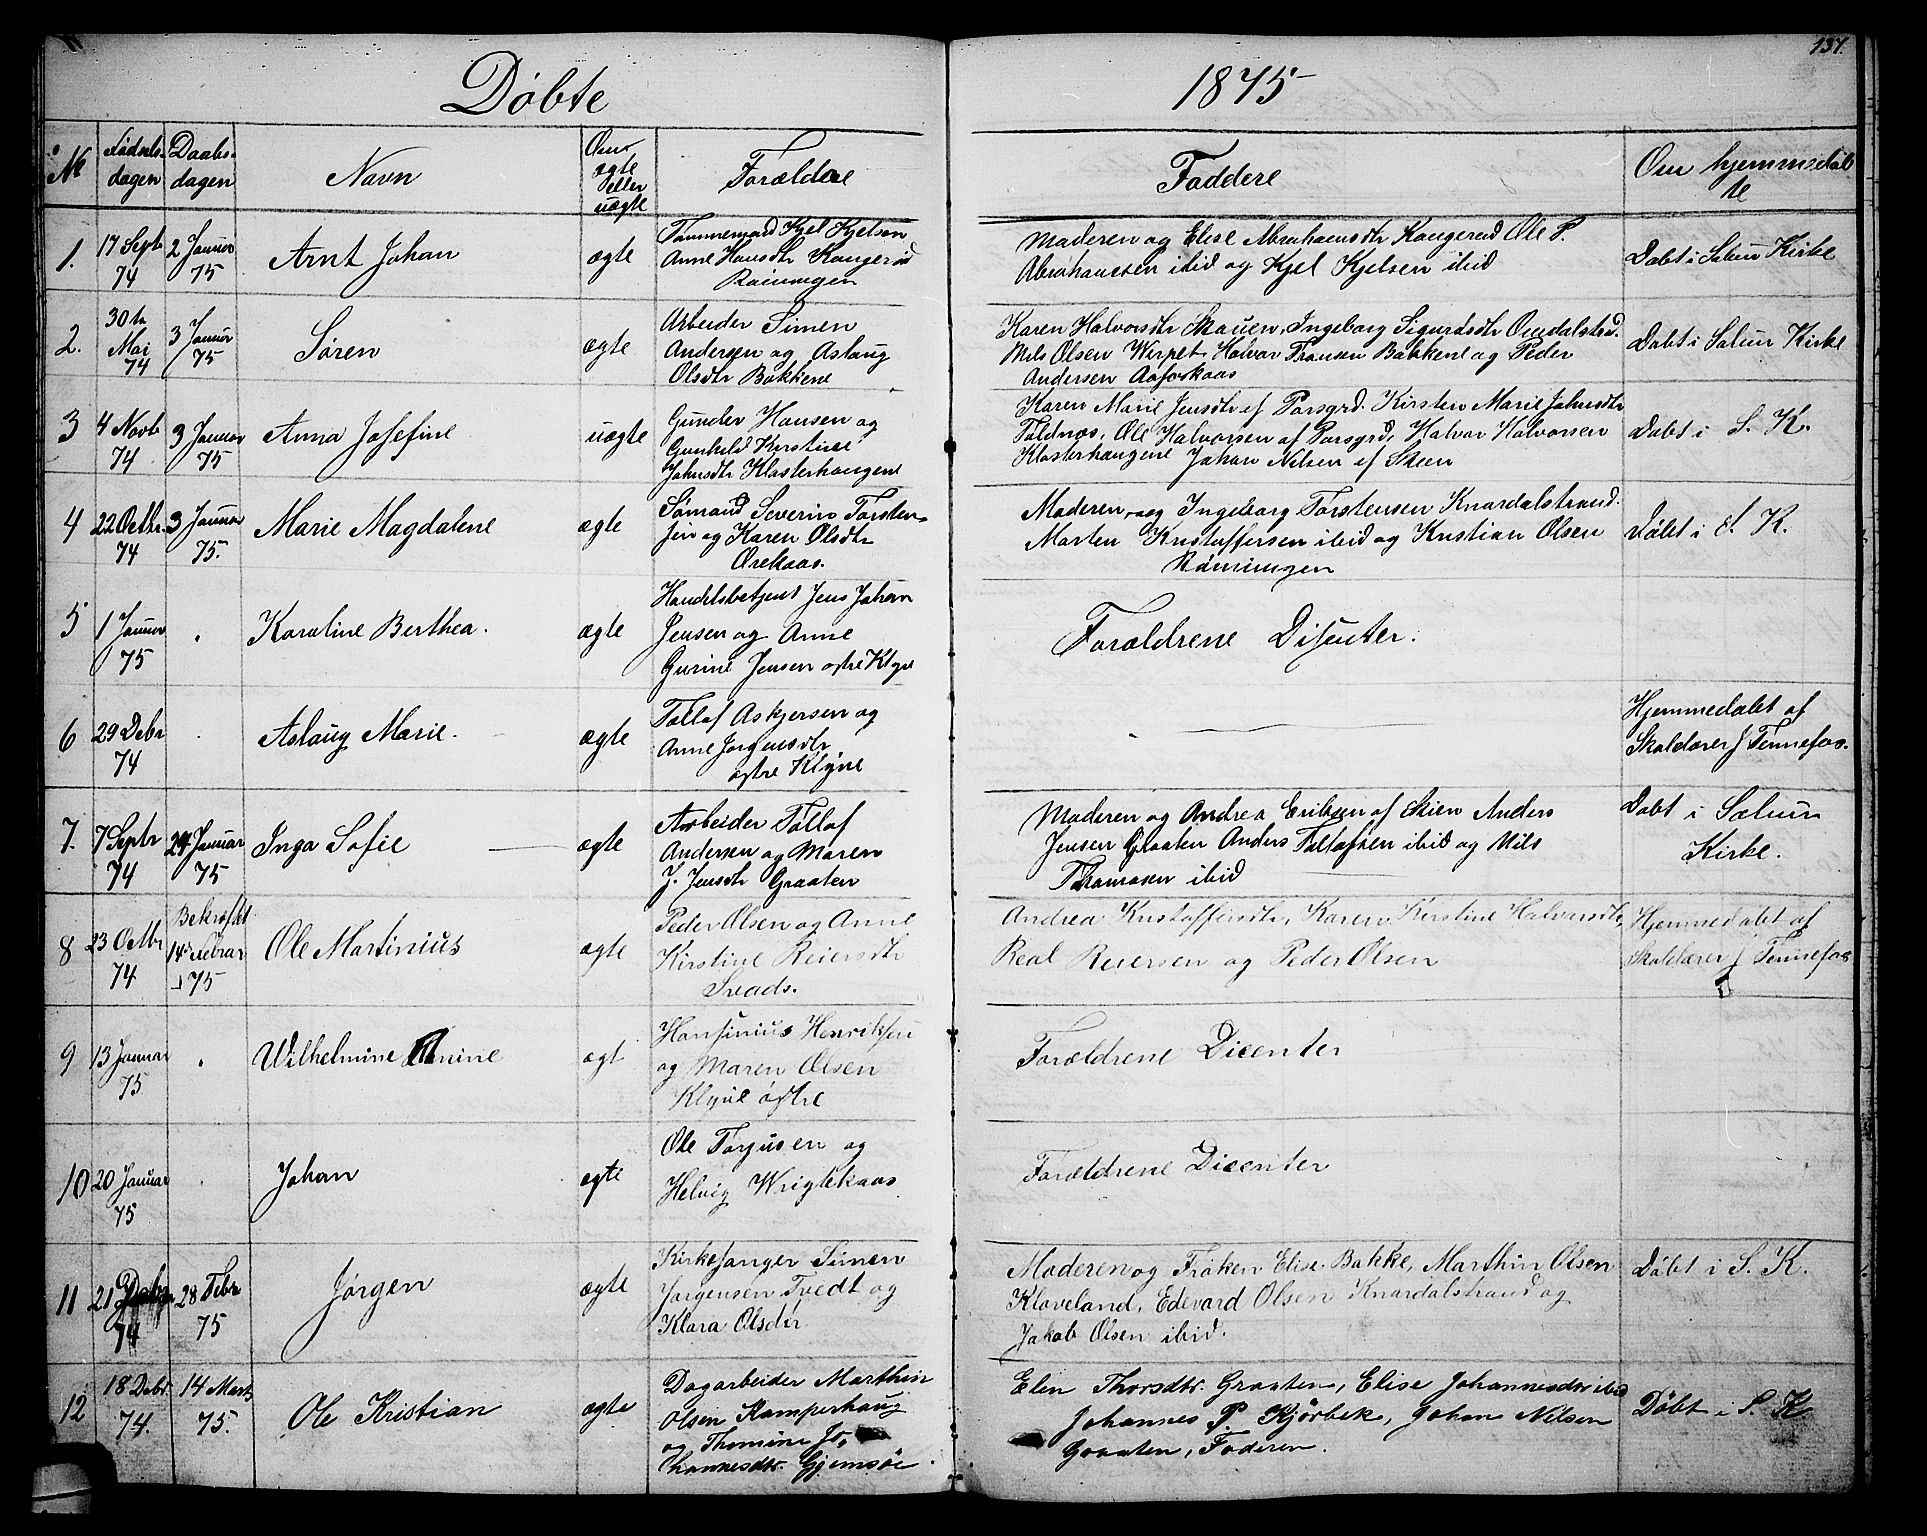 137.
Døbte
1875
№
Fødsels-
dagen
Daabs-
dagen
Navn
Om
ægte
eller
uægte
Forældre
Faddere
Om hjemmedøb
te
1.
17 Septb
74
2 Januar
75
Arnt Johan
ægte
Tømmermand Kjel Kjelsen
Anne Hansdtr Kongerød
Rønningen
Moderen og Elise Abrahamsdtr Kongerød Ole P.
Abrahamsen ibid og Kjel Kjelsen ibid
Døbt i Solum Kirke
2.
30te
Mai
74
3 Januar
75
Søren
ægte
Arbeider Simen
Andersen og Aslaug
Olsdtr Bakkene
Karen Halvorsdtr Skauen, Ingeborg Sigurdsdtr Omdalstrd.
Nils Olsen Werpet, Halvor Fransen Bakkene og Peder
Andersen Aaforskaas
Døbt i Solum Kirke
3
4 Novb
74
3 Januar
75
Anna Josefine
uægte
Gunder Hansen og
Gunhild Kirstine
Johnsdtr Klosterhaugene
Karen Marie Jensdtr af Porsgrd. Kirsten Marie Johnsdtr
Foldnæs, Ole Halvorsen af Porsgrd, Halvor Halvorsen
Klosterhaugene Johan Nilsen af Skien
Døbt i S. K.
4
22 Octbr.
74
3 Januar
75.
Marie Magdalene
ægte
Sømand Severin Torsten-
sen og Karen Olsdtr
Ørekaas.
Moderen og Ingeborg Torstensen Knardalstrand.
Morten Kristoffersen ibid og Kristian Olsen
Rønningen
Døbt i S. K.
5
1 Januar
75
Karoline Berthea.
ægte
Handelsbetjent Jens Johan
Jensen og Anne
Gurine Jensen østre Klyve
Forældrene Disenter.
6
29 Debr
74
Aslaug Marie.
ægte
Tollof Askjersen og
Anne Jørgensdtr
østre Klyve
Hjemmedøbt af
Skolelærer J Tennefos.
7.
7 Septr
74
24 Januar
75
Inga Sofie
ægte
Arbeider Tollof
Andersen og Maren
J. Jensdtr Graaten
Moderen og Andrea Eriksen af Skien Anders
Jensen Graaten Anders Tollofsen ibid og Nils
Thomasen ibid
Døbt i Solum
Kirke.
8
23 Octbr
74
Bekræftet
14de Februar
75
Ole Martinius
ægte
Peder Olsen og Anne
Kirstine Reiersdtr
Andrea Kristoffersdtr, Karen Kirstine Halvorsdtr,
Reiersen og Peder Olsen
Hjemmedøbt af
Skolelærer J Tennefos
9
13 Januar
75
Wilhelmine Anine
ægt
Hansinius Henriksen
og Maren Olsen
Klyve østre
Forældrene Dicenter
10
20 Januar
75
Johan
ægte
Ole Torjusen og
Helvig Wriglekaas
Forældrene Dicenter
11
21 Debr
74
28 Febr
75
Jørgen
ægte
Kirkesanger Simen
Jørgensen Tvedt og
Klara Olsdtr
Moderen og Frøken Elise Bakke, Marthin Olsen
Kloveland, Edevard Olsen Knardalstrand og
Jakob Olsen ibid.
Døbt i S. K.
12
18 Debr.
74.
14 Marts
75.
Ole Kristian
ægte
Dagarbeider Marthin
Olsen Kamperhaug
og Thomine Jo-
hannesdtr. Gjemsøe.
Elen Thorsdtr. Graaten, Elise Johannesdtr ibid
Johannes P. Kjørbek, Johan Nilsen
Graaten, Faderen.
Døbt i S. K